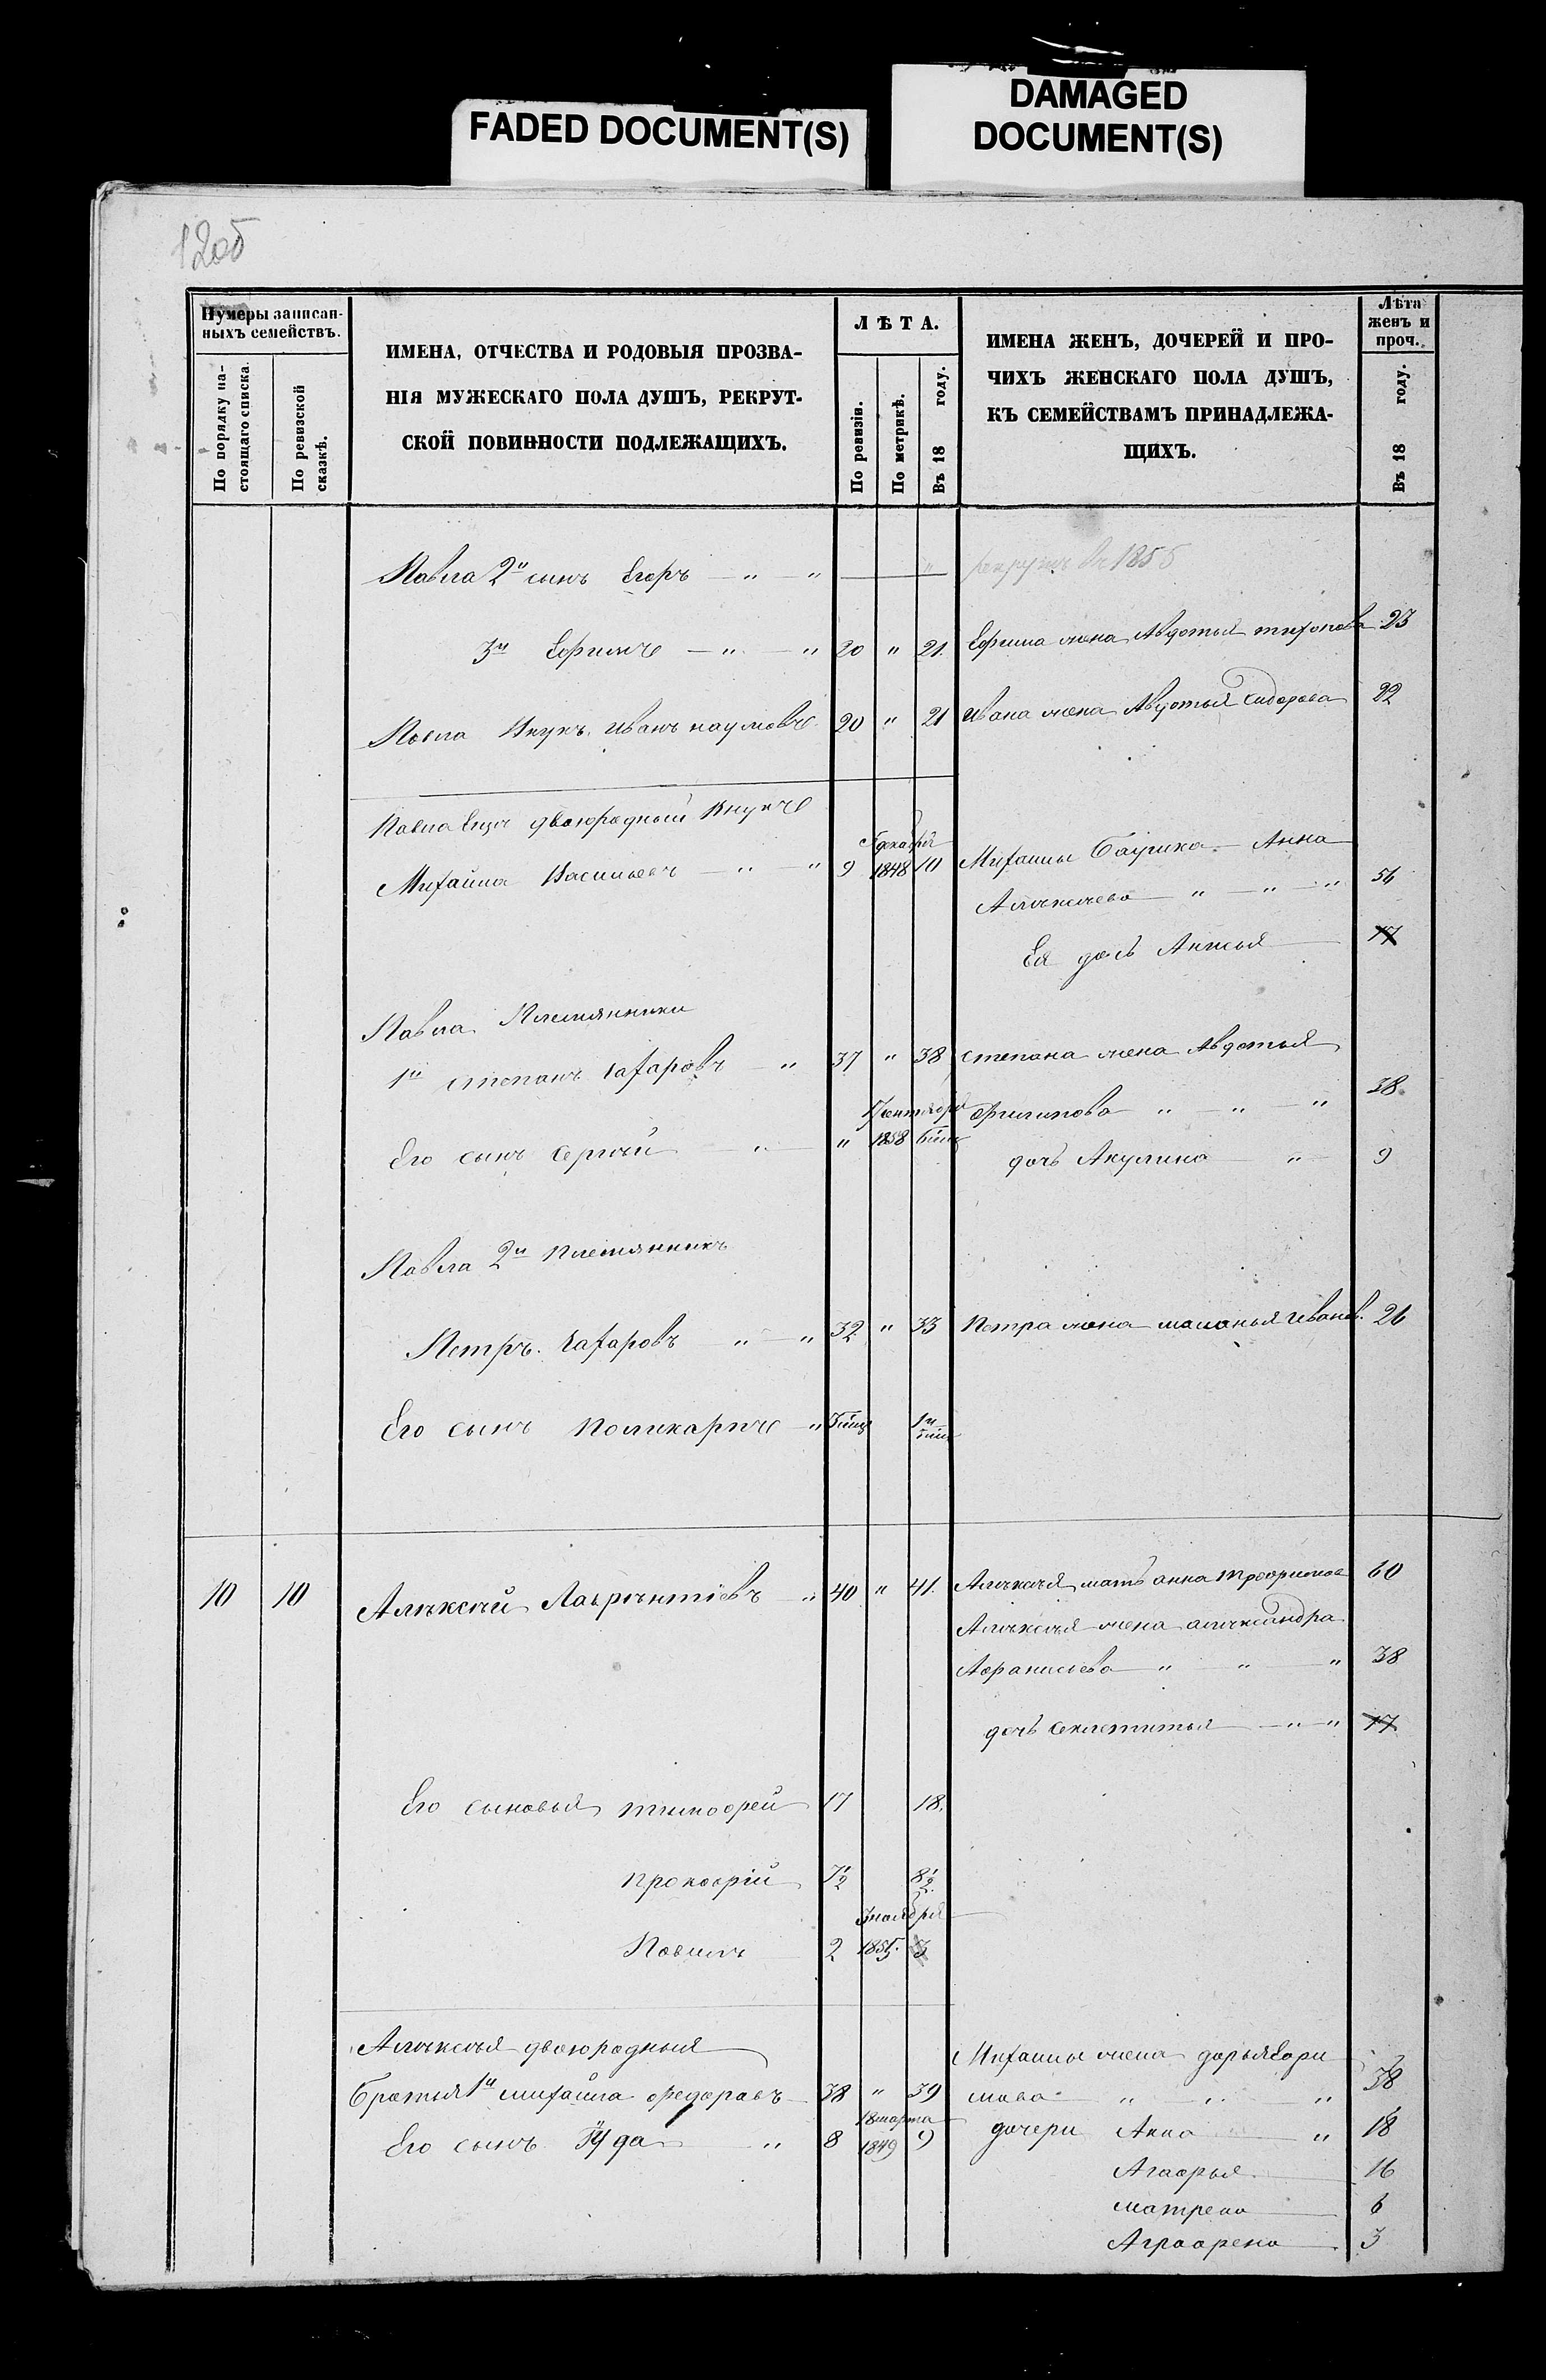 FADED DOCUMENT(S)
DAMAGED
DOCUMENT(S)
12об
Нумеры записан-
ныхъ семействъ.
По порядку на-
стоящаго списка.
По ревизской
сказкѣ.
ИМЕНА, ОТЧЕСТВА И РОДОВЫЯ ПРОЗВА-
НІЯ МУЖЕСКАГО ПОЛА ДУШЪ, РЕКРУТ-
СКОЙ ПОВИННОСТИ ПОДЛЕЖАЩИХЪ.
ЛѢТА.
По ревизіи.
По метрикѣ.
Въ 18 году.
ИМЕНА ЖЕНЪ, ДОЧЕРЕЙ И ПРО-
ЧИХЪ ЖЕНСКАГО ПОЛА ДУШЪ,
КЪ СЕМЕЙСТВАМЪ ПРИНАДЛЕЖА-
ЩИХЪ.
Лѣта
женъ и
проч.
Въ 18 году.
Павла 2й сынъ Егоръ — " — " рекрутъ въ 1855
3й Ефимъ — " — " 20 " 21. Ефима жена Авдотья тихонова 23
Павла Внукъ Иванъ наумовъ 20 " 21 Ивана жена Авдотья Сидорова 22
Павла двоюродный Внукъ
Михайла Васильевъ — " — " 9 декабря 1848 10 Михаилы Анна
Алѣксѣева " — " — " 56
Ея дочь 17
Павла Племянники
1й степанъ Захаровъ — " 37 " 38 степана жена Авдотья
Филипова " — " — " 38
Его сынъ Сергѣй — " — " 1858 дочь Акулина — " 9
Павла 2й племянникъ
Петръ Захаровъ " — " 32 " 33 Петра жена маланья Иванов. 26
Его сынъ Поликарпъ — "
10 10 Алѣксѣй Лаврѣнтіевъ " 40 " 41. Алѣксѣя мать анна Трофимова 60
Алѣксѣя жена алѣксандра
Афанисьева " " " 38
дочь секлетинья — " " 17
Его сыновья тимофей 17 18.
прокофій 7½ 8½
ноября
Павилъ 2 1855. 3
Алѣксѣя двоюродныя
Братья 1й михайла федоравъ 38 " 39 Михаилы жена дарья Ефи
мова " " " 38
Его сынъ Іуда " 8 18 марта 1849 9 дочери Анна " 18
Агафья 16
матрена 6
Аграфена 3